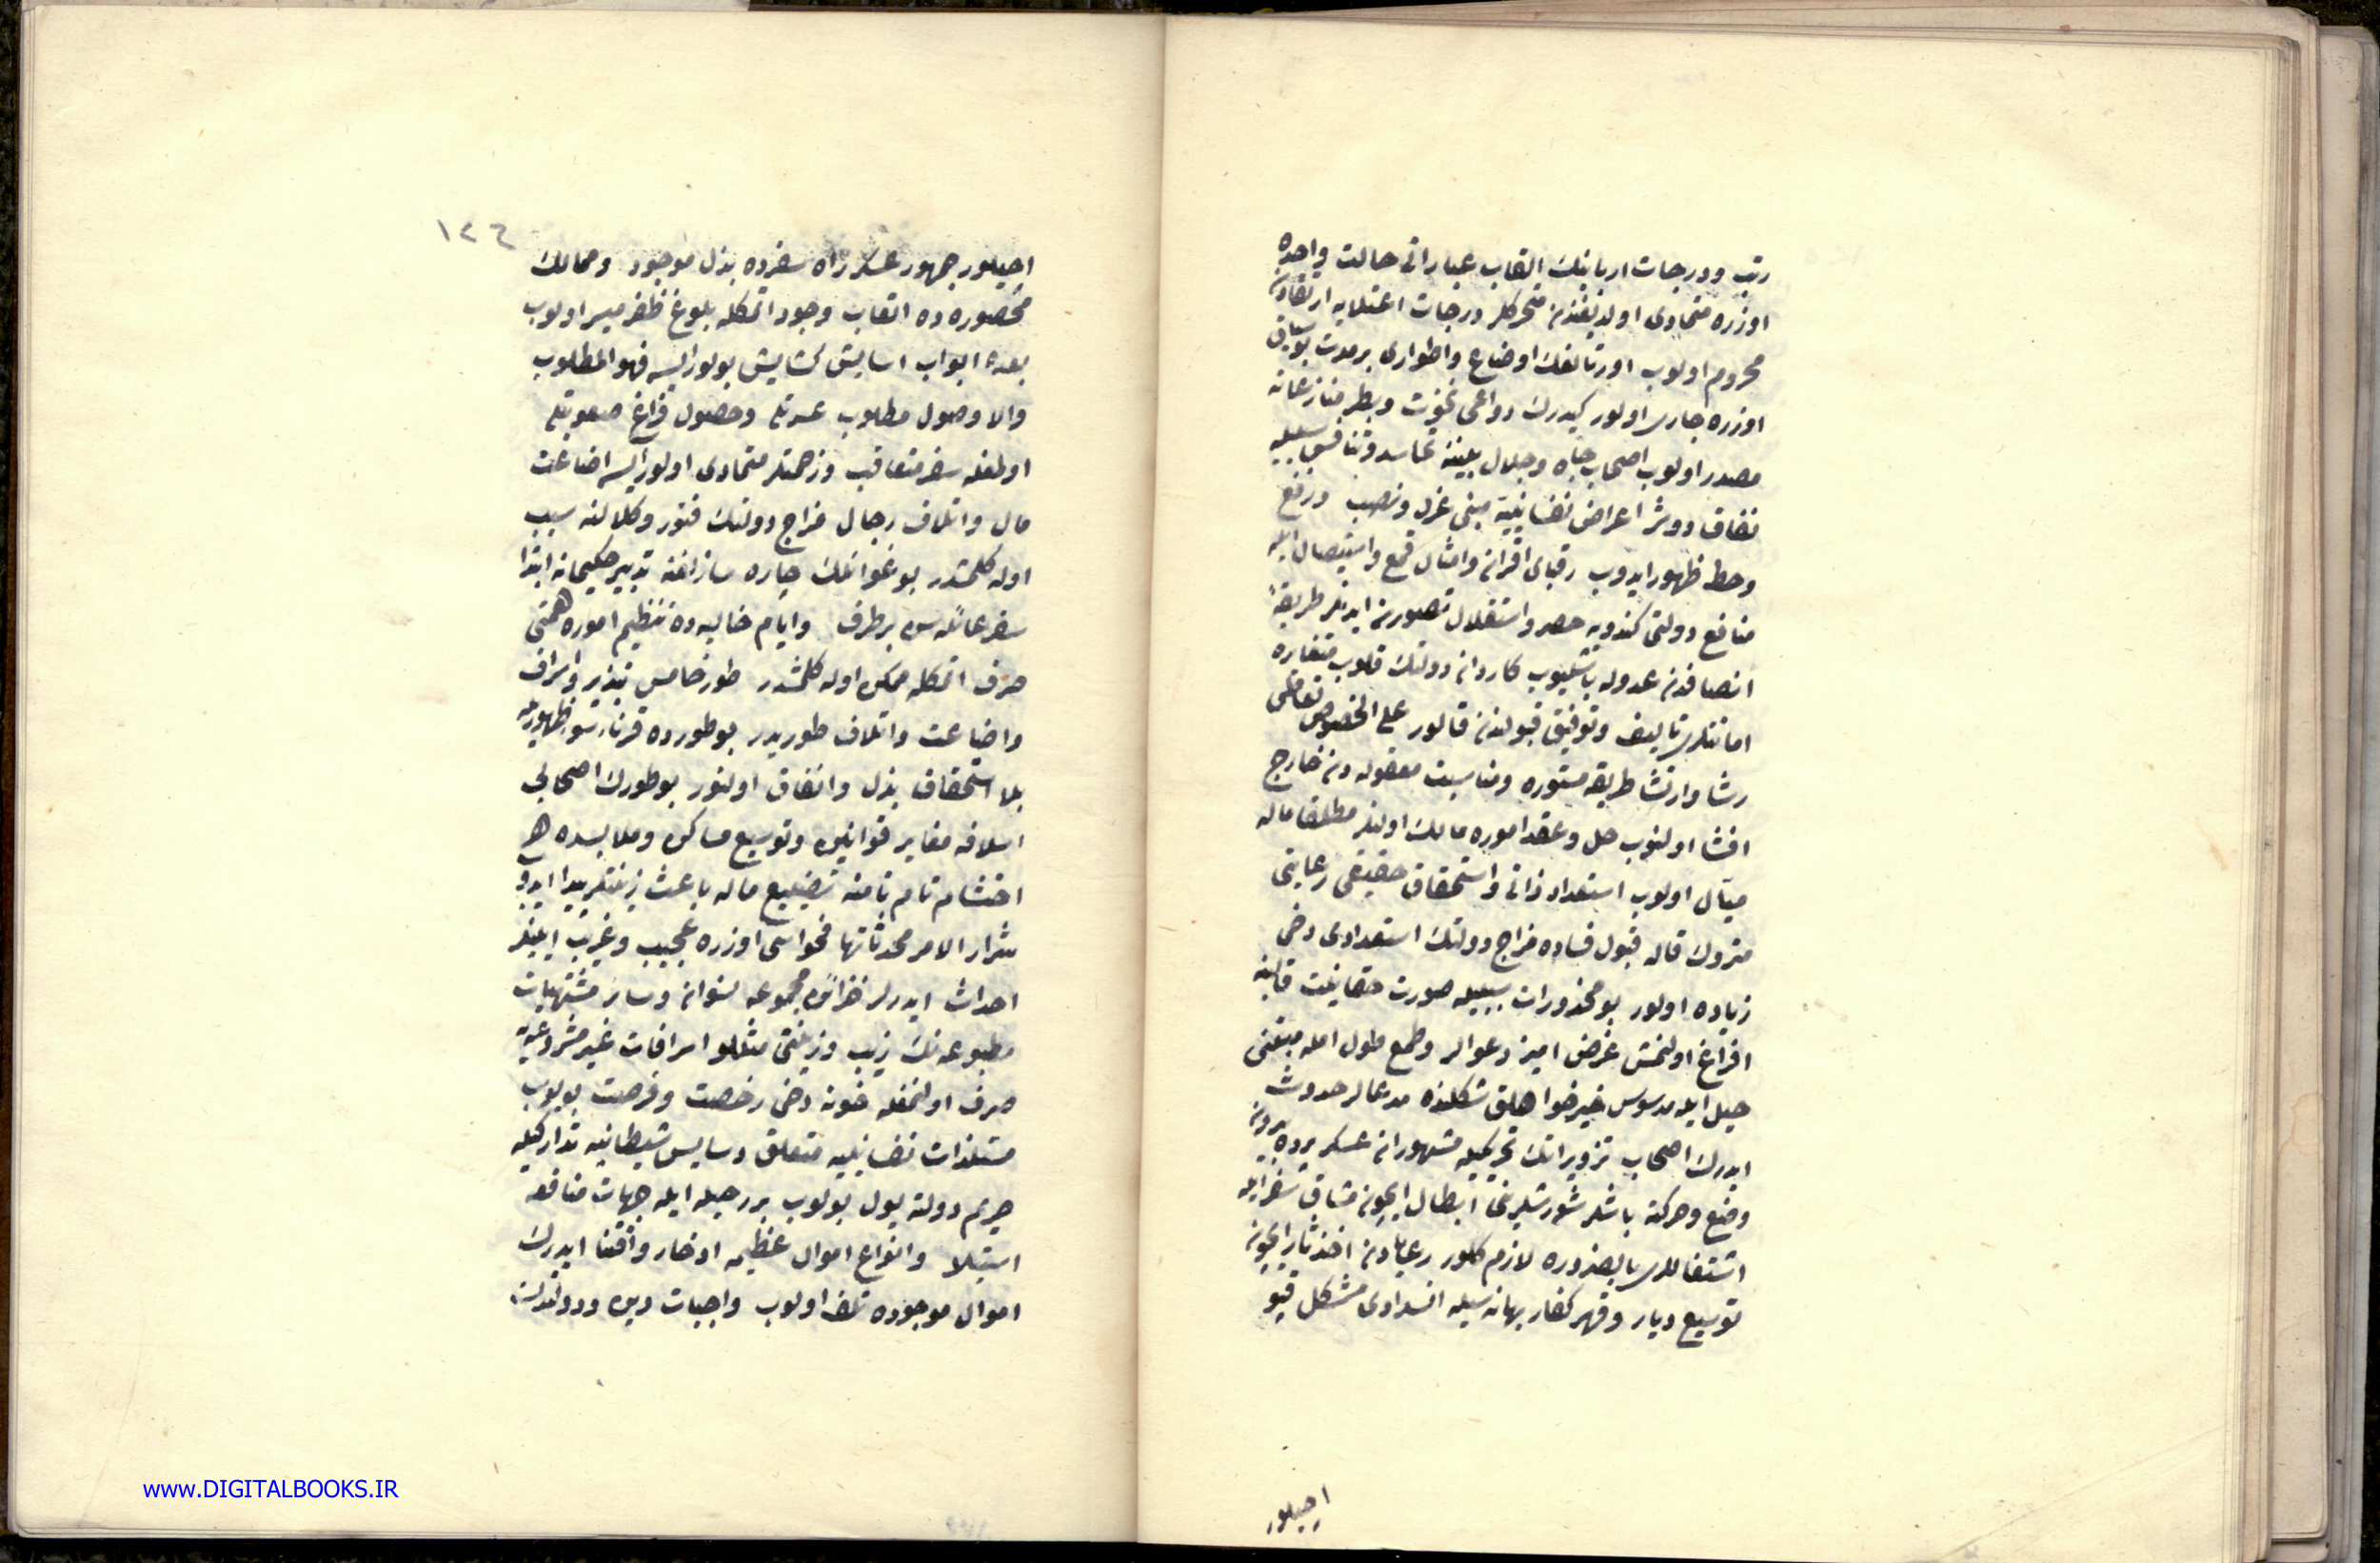 رتب ودرجات اربابنك القاب عباراتی حالت واحده
اوزره متمادی اولدیغندن متحرکلر درجات اعتلایه ارتقادن
محروم اولوب اورتالغك اوضاع واطواری بر مدت بو سیاق
اوزره جاری اولور کیدرك دواعی نخوت وبطر منازعانه
مصدر اولوب اصحاب جاه وجلال بیننه تحاسد وتنافس سببیله
نفاق دوشر اعراض نفسانیه مبنی عزل ونصب ورفع
وحط ظهور ایدوب رقبای اقران وامثال قمع واستیصال ایله
منافع دولتی کندویه حصر واستقلال تصورین ایدنلر طریقۀ
انصافدن عدوله باشلیوب کاردان دولتك قلوب متغایره
امانتلری تالیف وتوفیق قبولندن قالور علی الخصوص تعاطی
رشا وارتشا طریقه مستوره ومناسبت معقوله دن خارج
افشا اولنوب حل وعقد اموره مالك اولنلر مطلقا ماله
میال اولوب استعداد ذاتی واستحقاق حقیقی رعایتی
متروك قاله قبول فساده مزاج دولتك استعدادی دخی
زیاده اولور بو محذورات سببیله صورت حقانیت قالبنه
افراغ اولنمش غرض امیز دعوالر وطمع طول امله مبتنی
حیل ایله مدسوس خیرخواهلق شکلنده مدعالر حدوث
ایدرك اصحاب تزویراتك تحریکیله مشهوران عسکر یرده یردن
وضع وحرکته باشلر شورشلرینی ابطال ایچون مشاق سفر ایله
اشتغاللری بالضروره لازم کلور رعایادن اخذ ثار ایچون
توسیع دیار وقهر کفار بهانه سیله انسدادی مشکل قپو
اچیلور
١٢٤
اچیلور جمهور عسکر راه سفرده بذل موجود وممالك
محصوره ده اتعاب وجود اتمکله بلوغ ظفر میسر اولوب
بعده ابواب اسایش کشایش بولورایسه فهو المطلوب
والا وصول مطلوب عسرتله وحصول فراغ صعوبتله
اولمغله سفر متعاقب وزحمتلر متمادی اولورایسه اضاعت
مال واتلاف رجال مزاج دولتك فتور وکلالنه سبب
اوله کلمشدر بو غوائلك چاره سازلغنه تدبیر حکیمانه ابتدا
سفر غائله سن برطرف وایام خالیه ده تنظیم اموره همتی
صرف اتمکله ممکن اوله کلمشدر طور خامس تبذیر واسراف
واضاعت واتلاف طوریدر بو طورده قرناء سو ظهوریله
بلا استحقاق بذل وانفاق اولنور بو طورك اصحابی
اسلافه مغایر قوانین وتوسیع مساکن وملابسده هر
احتشام تام نامنه تضییع ماله باعث زینتلر پیدا ایدوب
شرار الامر محدثاتها فحواسی اوزره عجیب وغریب ایشلر
احداث ایدرلر خزائن مجموعه نسوان وسائر مشتهیات
مطبوعه نك زیب وزینتی مثللو اسرافات غیر مشروعیه
صرف اولنمغله خونه دخی رخصت وفرصت بولوب
مستلذات نفسانیه متعلق دسایس شیطانیه تدارکیله
حریم دولته یول بولوب بر رحیله ایله جهات منافعه
استیلا وانواع اموال عظیمه ادخار واقتنا ایدرك
اموال موجوده تلف اولوب واجبات دین ودولتدن
www.DIGITALBOOKS.IR